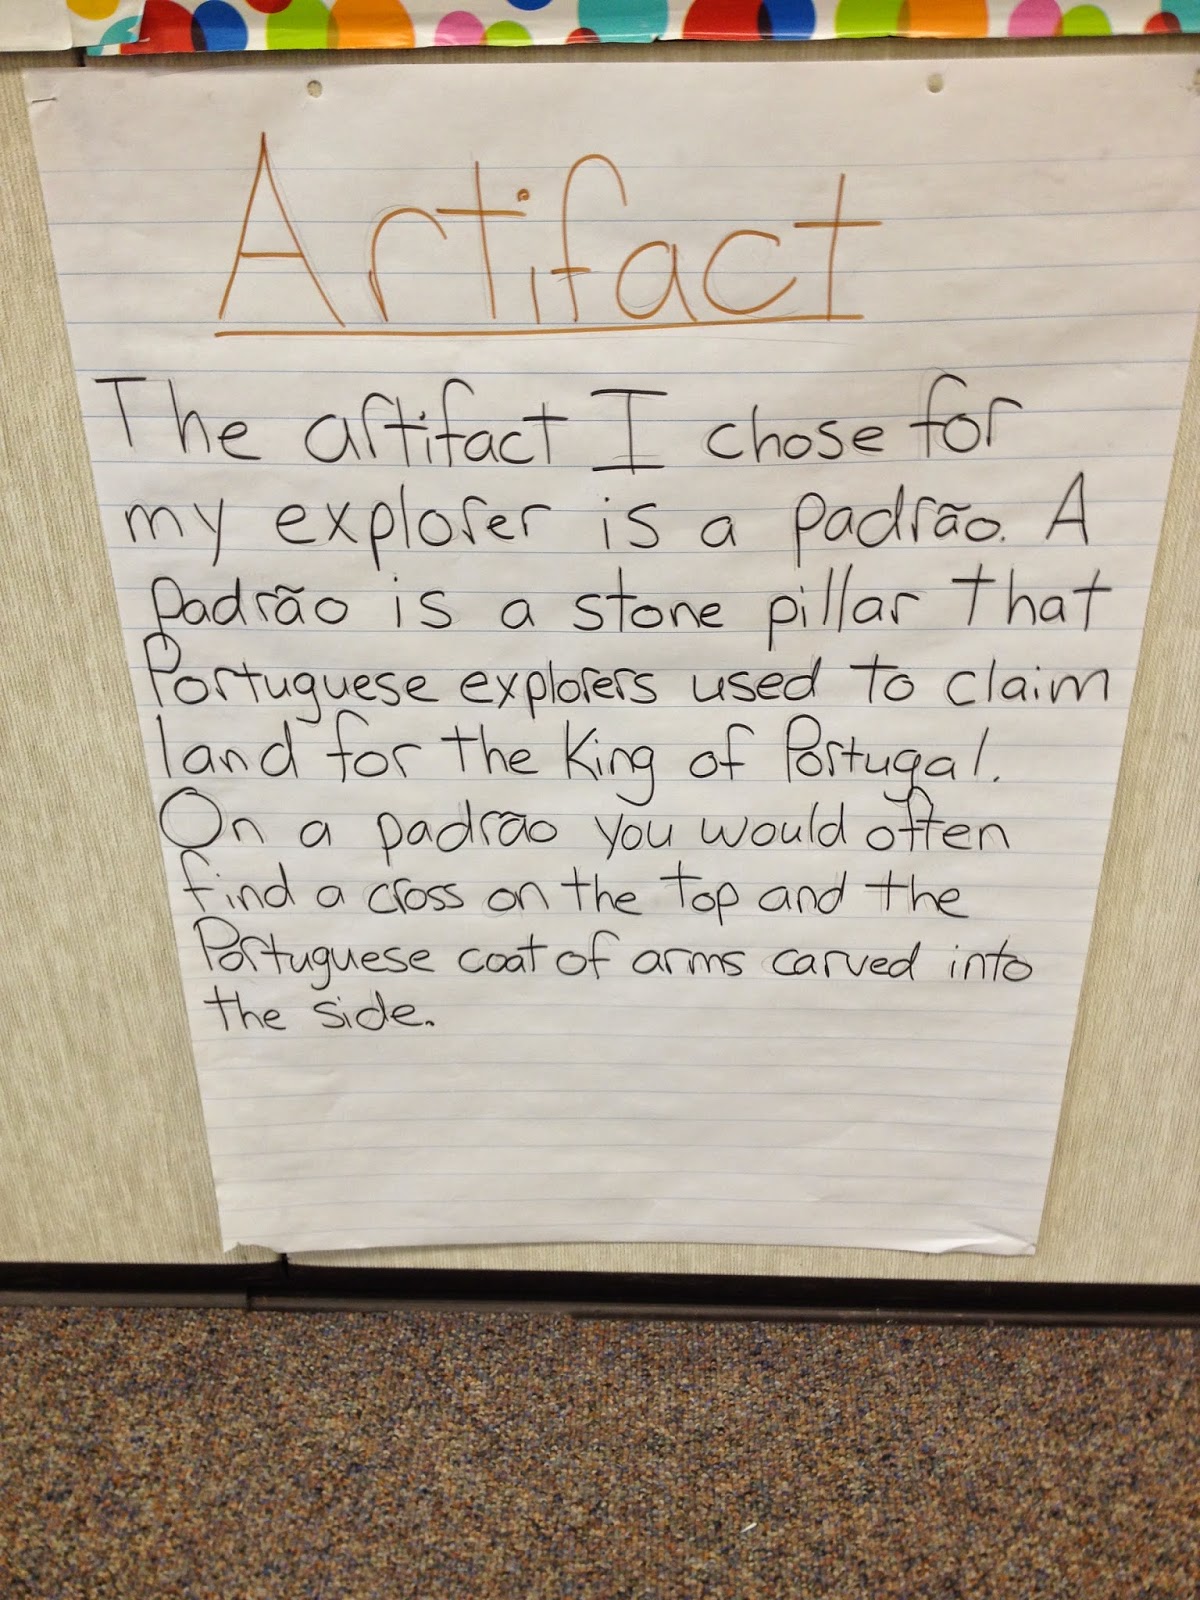 Artifact
The artifact I chose for
my explorer is a padrão. A
padrão is a stone pillar that
Portuguese explorers used to claim
land for the King of Portugal.
On a padrão you would often
find a cross on the top and the
Portuguese coat of arms carved into
the side.